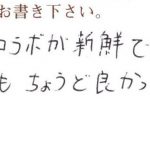 お書き下さい。
コラボが新鮮で
も ちょうど良かっ